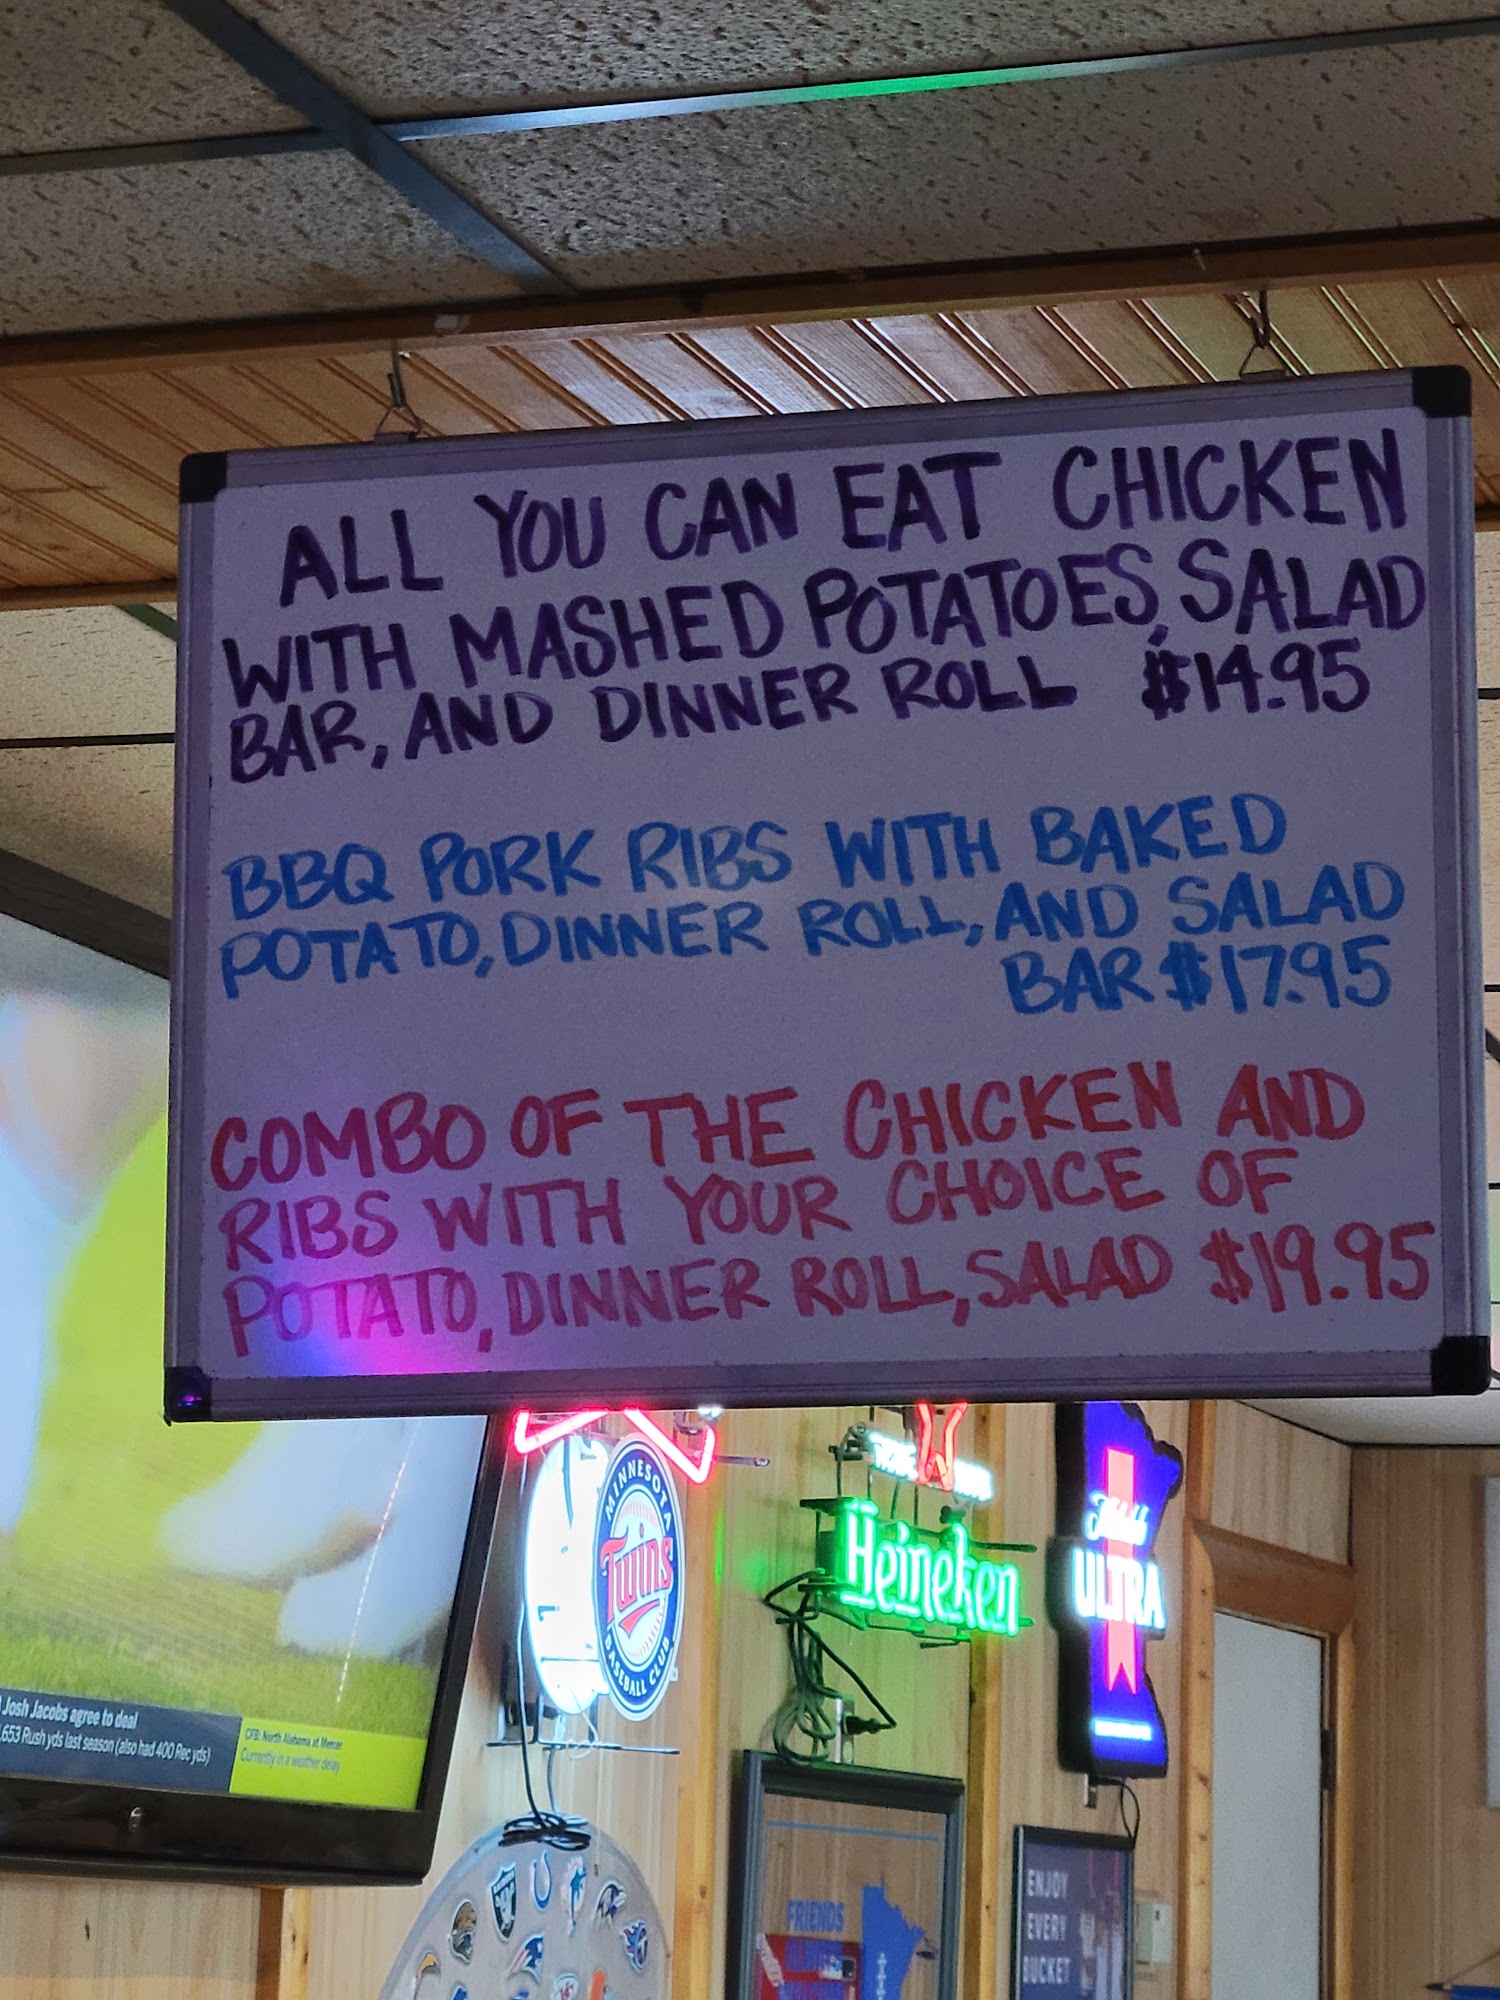 ALL YOU CAN EAT CHICKEN
WITH MASHED POTATOES, SALAD
BAR, AND DINNER ROLL $14.95
BBQ PORK RIBS WITH BAKED
POTATO, DINNER ROLL, AND SALAD
BAR $17.95
COMBO OF THE CHICKEN AND
RIBS WITH YOUR CHOICE OF
POTATO, DINNER ROLL, SALAD $19.95
MINNESOTA
Twins
BASEBALL CLUB
Heineken
Michelob
ULTRA
Josh Jacobs agree to deal
653 Rush yds last season (also had 400 Rec yds)
CFB: North Alabama at Mercer
Currently in a weather delay
FRIENDS
ENJOY
EVERY
BUCKET